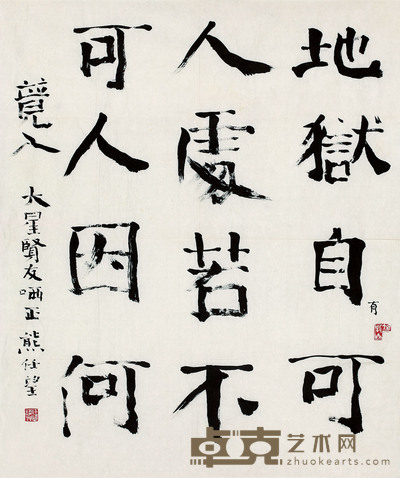 地獄自可
有
人處若不
可人因何
竟入 大星賢友哂正 熊任望
卓克艺术网
zhuokearts.com